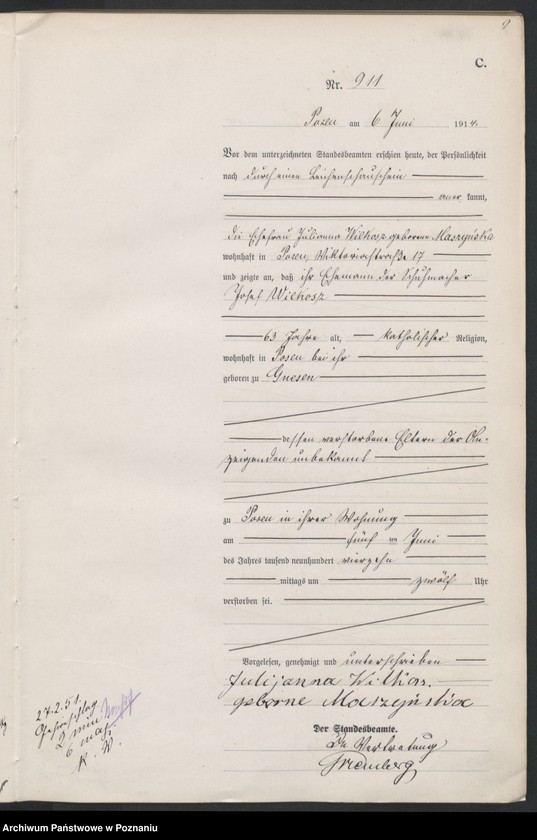 C.
Nr. 911
Posen am 6 Juni 1914.
Vor dem unterzeichneten Standesbeamten erschien heute, der Persönlichkeit
nach durch einen Leichenschauschein
aner kannt,
die Ehefrau Julianna Wilkosz geborene Maszyńska
wohnhaft in Posen, Viktoriastraße 17
und zeigte an, daß ihr Ehemann der Schuhmacher
Josef Wilkosz
63 Jahre alt, katholischer Religion,
wohnhaft in Posen bei ihr
geboren zu Gnesen
dessen verstorbene Eltern der An-
zeigenden unbekannt
zu Posen in ihrer Wohnung
am fünf ten Juni
des Jahres tausend neunhundert vierzehn
mittags um zwölf Uhr
verstorben sei.
Vorgelesen, genehmigt und unterschrieben
Julijanna Wilkos.
geborne
Der Standesbeamte.
In Vertretung
27.2.51.
K. W.
Archiwum Państwowe w Poznaniu